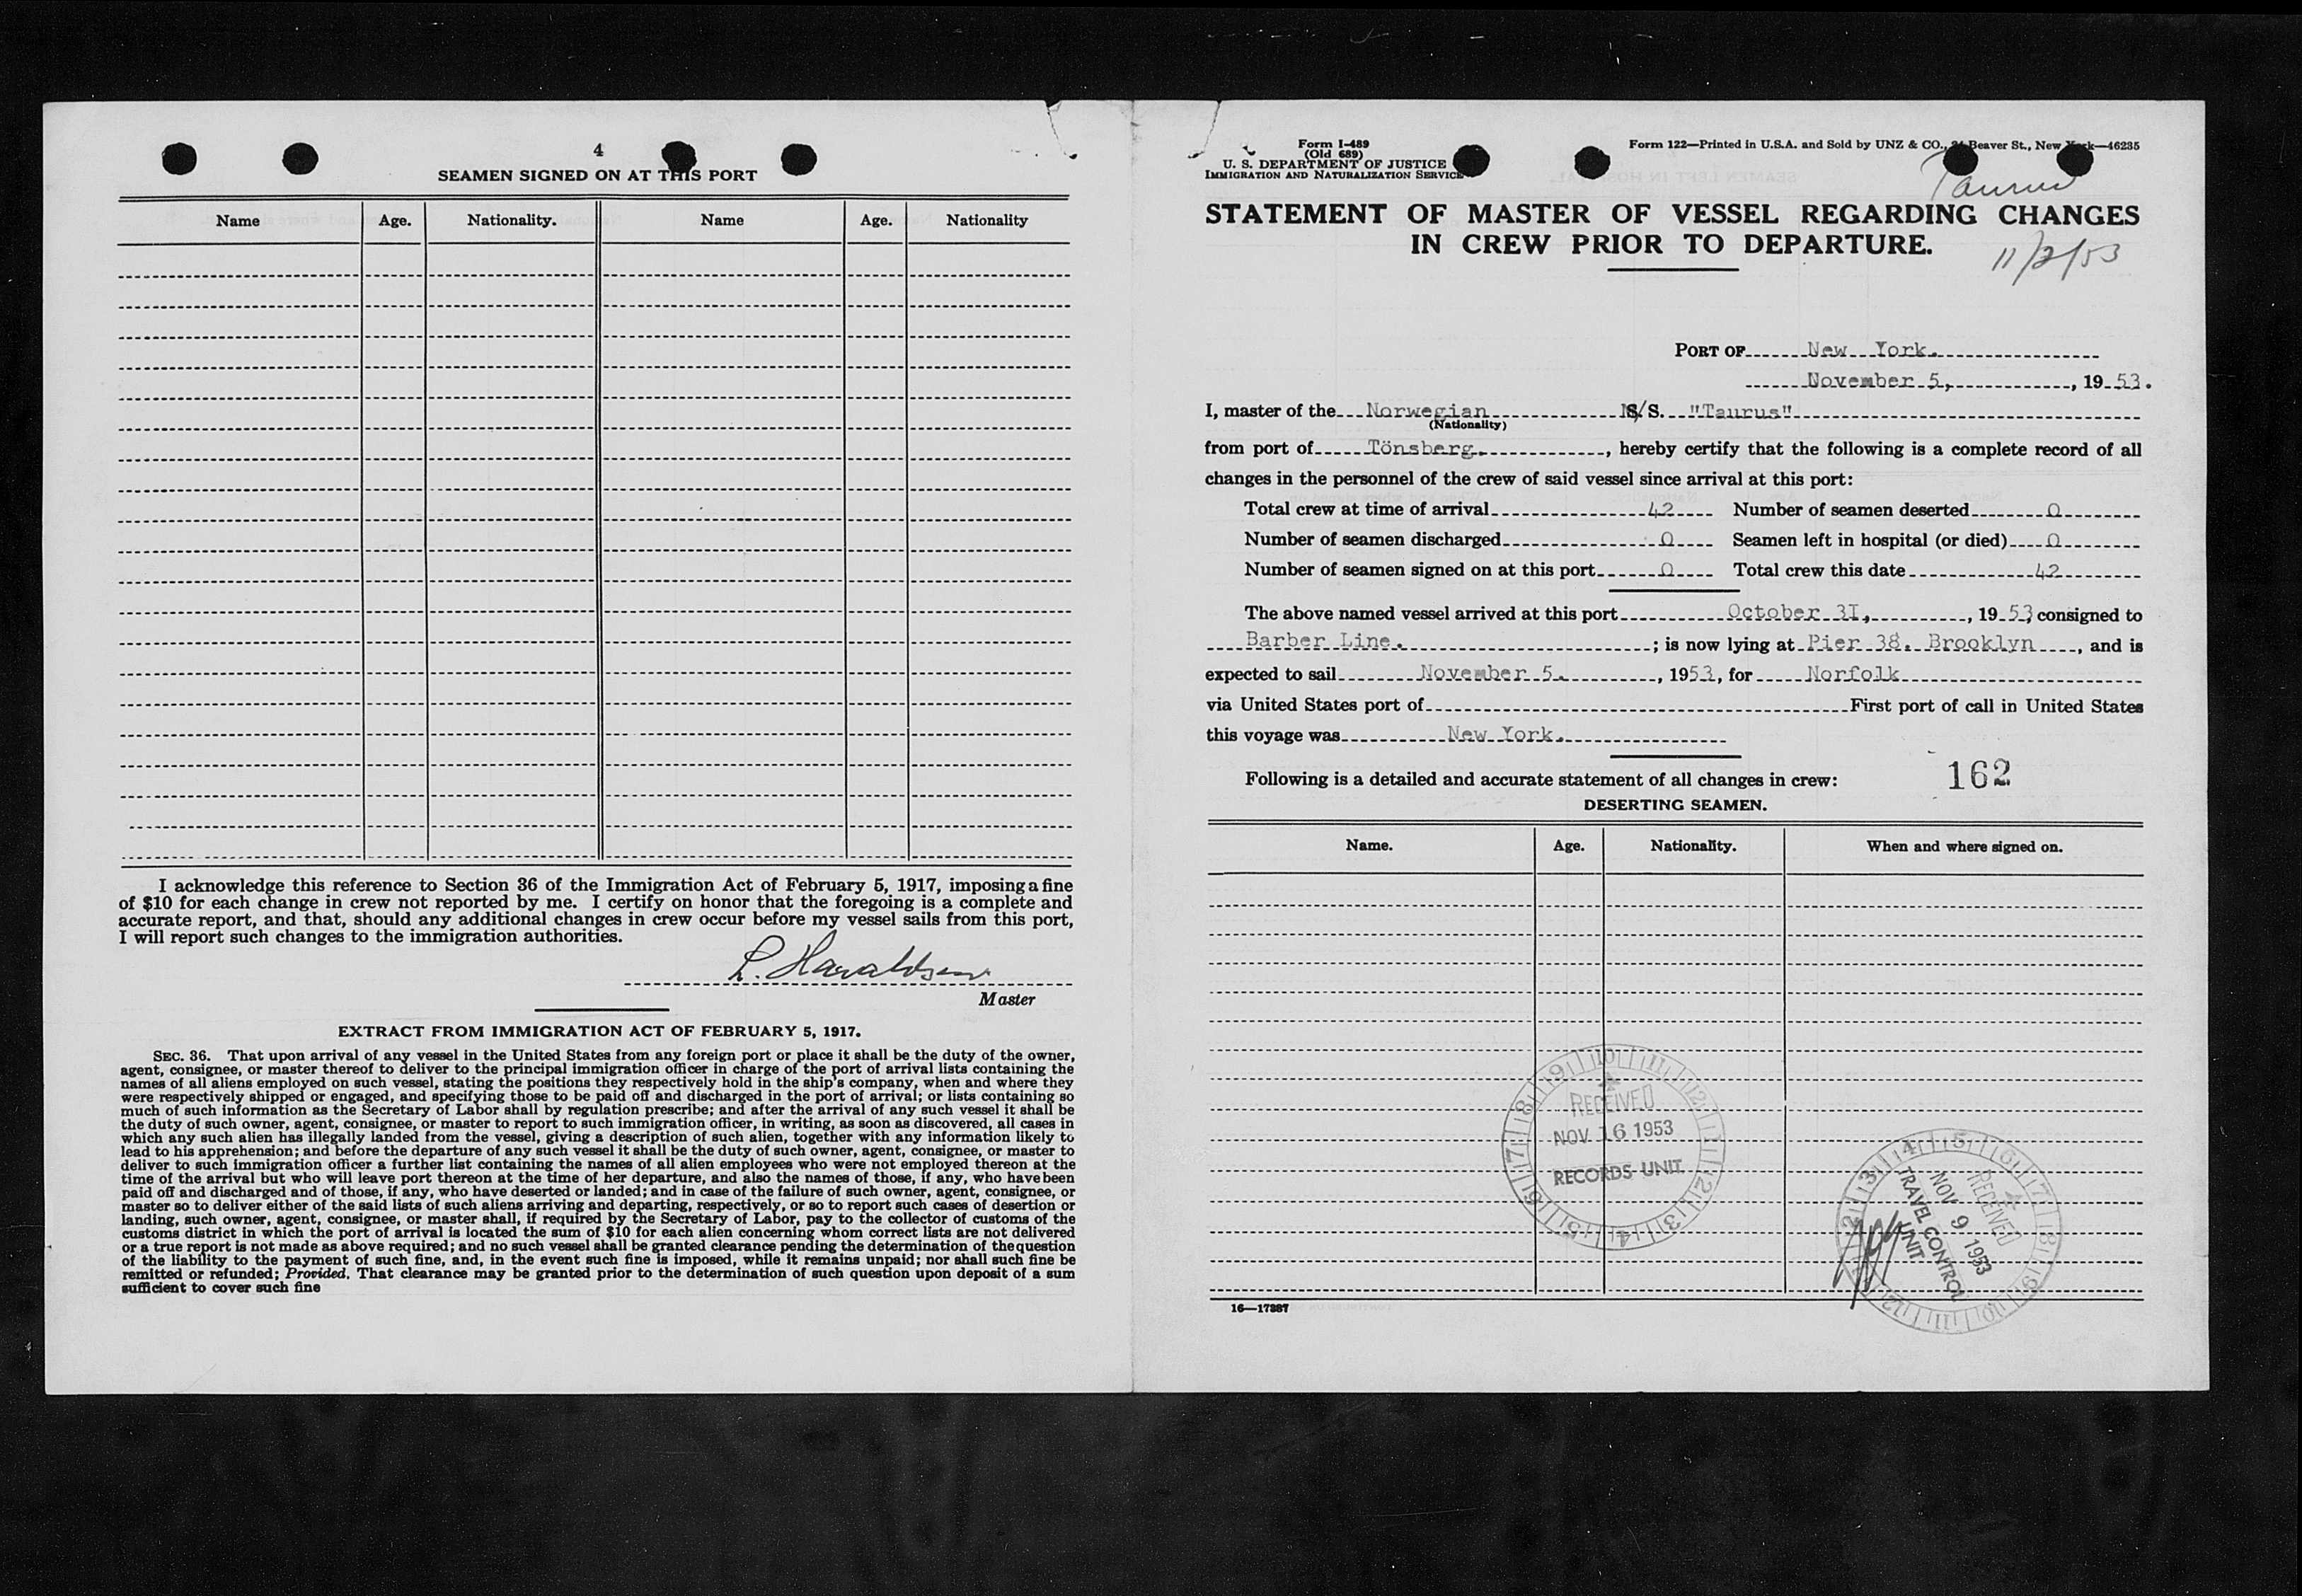 4
SEAMEN SIGNED ON AT THIS PORT
Name Age. Nationality. Name Age. Nationality
I acknowledge this reference to Section 36 of the Immigration Act of February 5, 1917, imposing a fine
of $10 for each change in crew not reported by me. I certify on honor that the foregoing is a complete and
accurate report, and that, should any additional changes in crew occur before my vessel sails from this port,
I will report such changes to the immigration authorities.
L. Haraldsen
Master
EXTRACT FROM IMMIGRATION ACT OF FEBRUARY 5, 1917.
SEC. 36. That upon arrival of any vessel in the United States from any foreign port or place it shall be the duty of the owner,
agent, consignee, or master thereof to deliver to the principal immigration officer in charge of the port of arrival lists containing the
names of all aliens employed on such vessel, stating the positions they respectively hold in the ship's company, when and where they
were respectively shipped or engaged, and specifying those to be paid off and discharged in the port of arrival; or lists containing so
much of such information as the Secretary of Labor shall by regulation prescribe; and after the arrival of any such vessel it shall be
the duty of such owner, agent, consignee, or master to report to such immigration officer, in writing, as soon as discovered, all cases in
which any such alien has illegally landed from the vessel, giving a description of such alien, together with any information likely to
lead to his apprehension; and before the departure of any such vessel it shall be the duty of such owner, agent, consignee, or master to
deliver to such immigration officer a further list containing the names of all alien employees who were not employed thereon at the
time of the arrival but who will leave port thereon at the time of her departure, and also the names of those, if any, who have been
paid off and discharged and of those, if any, who have deserted or landed; and in case of the failure of such owner, agent, consignee, or
master so to deliver either of the said lists of such aliens arriving and departing, respectively, or so to report such cases of desertion or
landing, such owner, agent, consignee, or master shall, if required by the Secretary of Labor, pay to the collector of customs of the
customs district in which the port of arrival is located the sum of $10 for each alien concerning whom correct lists are not delivered
or a true report is not made as above required; and no such vessel shall be granted clearance pending the determination of the question
of the liability to the payment of such fine, and, in the event such fine is imposed, while it remains unpaid; nor shall such fine be
remitted or refunded; Provided, That clearance may be granted prior to the determination of such question upon deposit of a sum
sufficient to cover such fine
Form I-489
(Old 689)
U. S. DEPARTMENT OF JUSTICE
IMMIGRATION AND NATURALIZATION SERVICE
Form 122—Printed in U.S.A. and Sold by UNZ & CO., Beaver St., New York—46235
Taurus
STATEMENT OF MASTER OF VESSEL REGARDING CHANGES
IN CREW PRIOR TO DEPARTURE.
11/2/53
PORT OF New York.
November 5, , 1953.
I, master of the Norwegian M/S. "Taurus"
(Nationality)
from port of Tönsberg. , hereby certify that the following is a complete record of all
changes in the personnel of the crew of said vessel since arrival at this port:
Total crew at time of arrival 42 Number of seamen deserted 0
Number of seamen discharged 0 Seamen left in hospital (or died) 0
Number of seamen signed on at this port 0 Total crew this date 42
The above named vessel arrived at this port October 3I, , 1953 consigned to
Barber Line. ; is now lying at Pier 38. Brooklyn , and is
expected to sail November 5. , 1953, for Norfolk
via United States port of First port of call in United States
this voyage was New York.
Following is a detailed and accurate statement of all changes in crew: 162
DESERTING SEAMEN.
Name. Age. Nationality. When and where signed on.
RECEIVED
NOV 16 1953
RECORDS UNIT
RECEIVED
NOV 9 1953
TRAVEL CONTROL
UNIT
16—17387